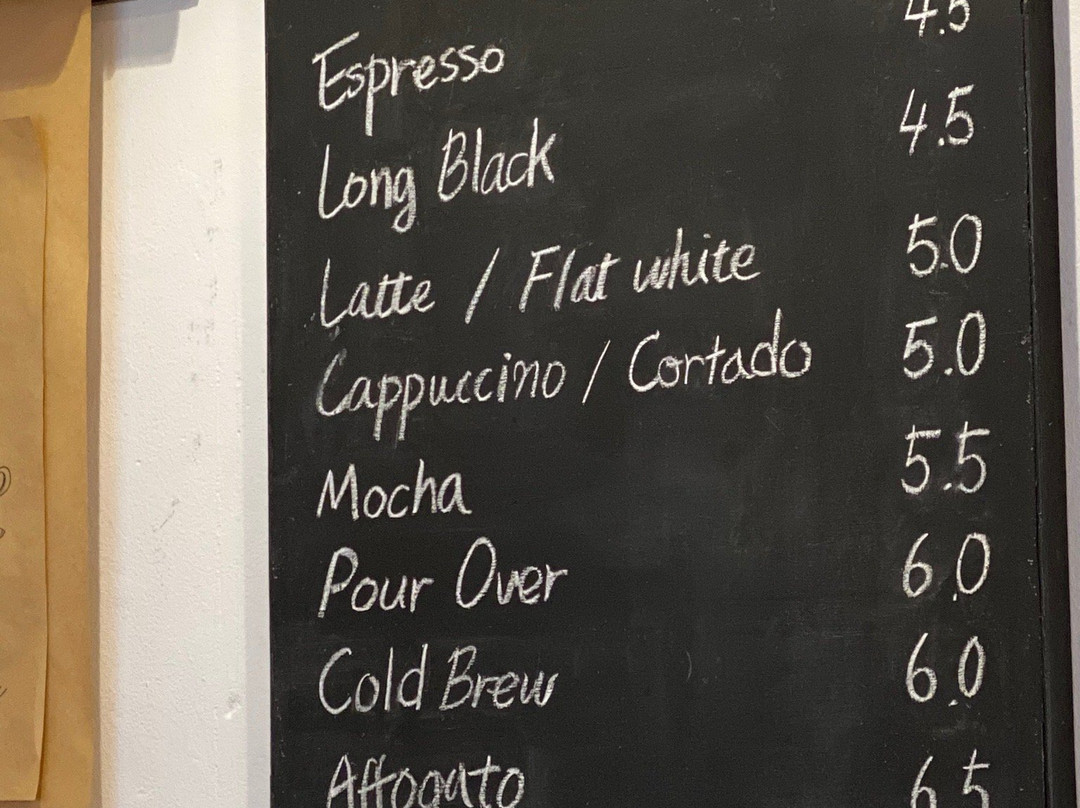 Espresso 4.5
Long Black 4.5
Latte / Flat white 5.0
Cappuccino / Cortado 5.0
Mocha 5.5
Pour Over 6.0
Cold Brew 6.0
Affogato 6.5